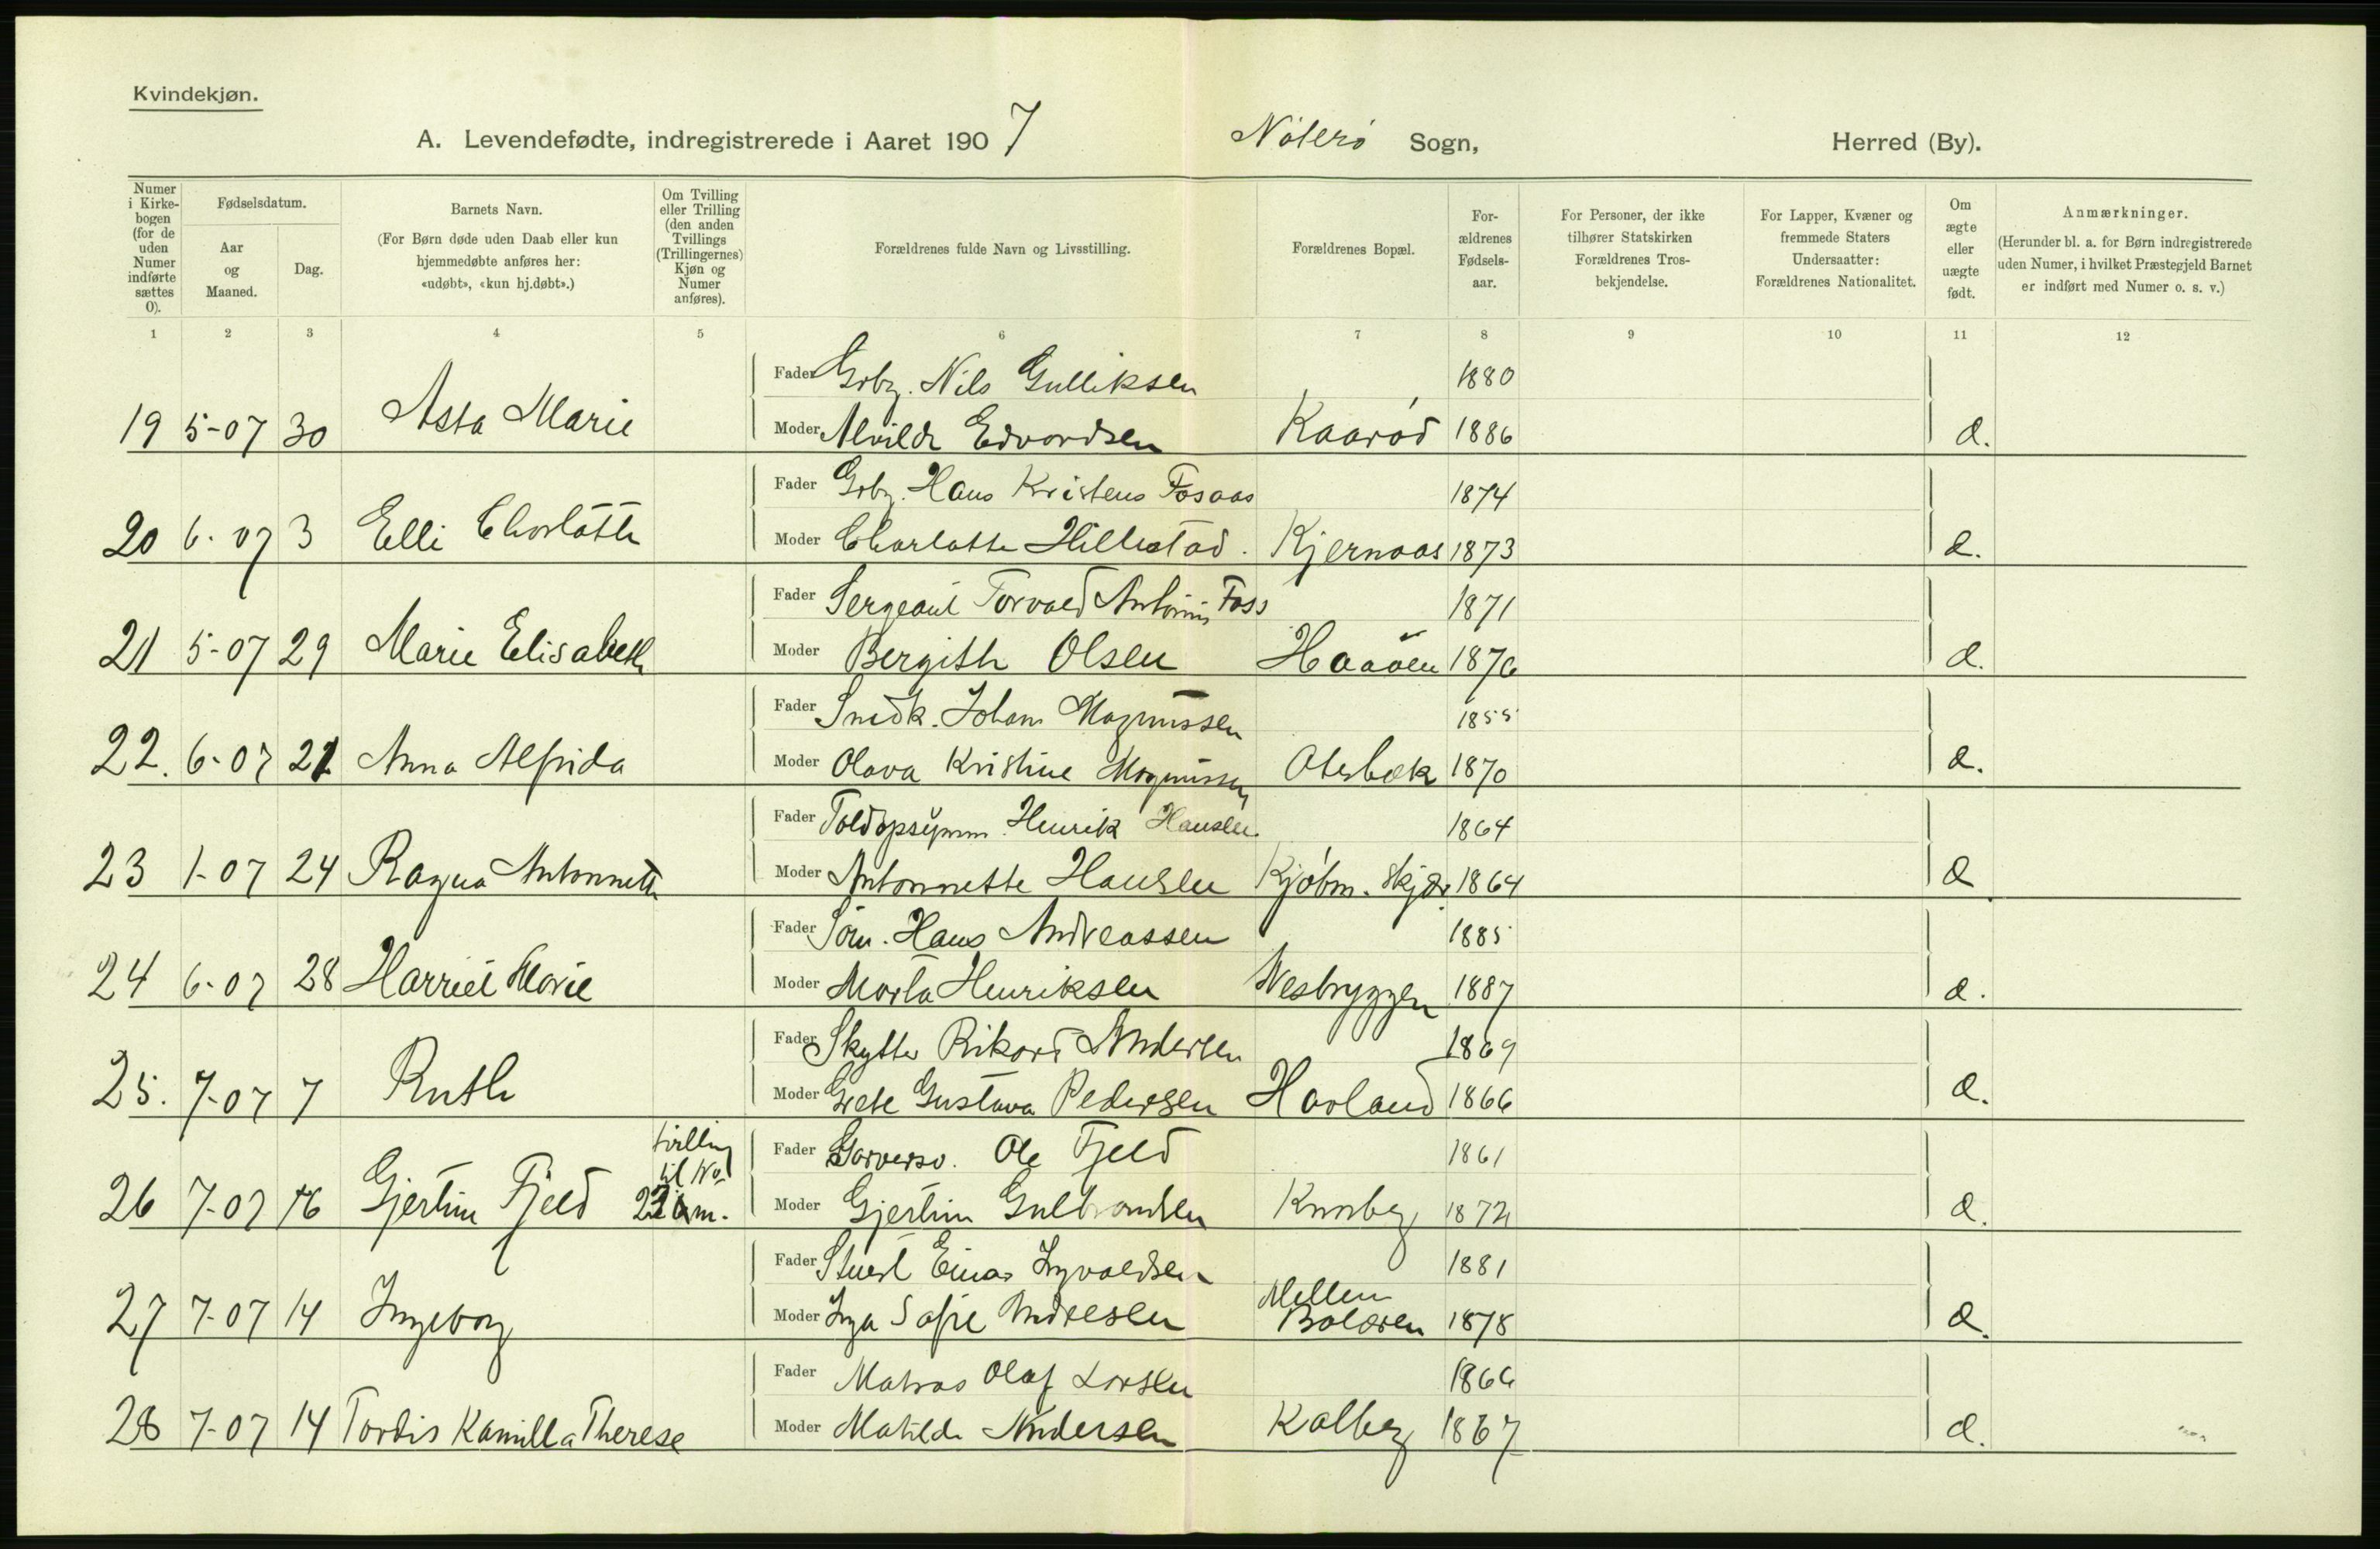 Kvindekjøn.
A. Levendefødte, indregistrerede i Aaret 1907 Nøterø Sogn, Herred (By).
Numer i Kirkebogen (for de uden Numer indførte sættes 0).
Fødselsdatum.
Aar og Maaned.
Dag.
Barnets Navn.
(For Børn døde uden Daab eller kun hjemmedøbte anføres her: «udøbt», «kun hj.døbt».)
Om Tvilling eller Trilling (den anden Tvillings (Trillingernes) Kjøn og Numer anføres).
Forældrenes fulde Navn og Livsstilling.
Forældrenes Bopæl.
Forældrenes Fødselsaar.
For Personer, der ikke tilhører Statskirken Forældrenes Trosbekjendelse.
For Lapper, Kvæner og fremmede Staters Undersaatter: Forældrenes Nationalitet.
Om ægte eller uægte født.
Anmærkninger.
(Herunder bl. a. for Børn indregistrerede uden Numer, i hvilket Præstegjeld Barnet er indført med Numer o. s. v.)
1 2 3 4 5 6 7 8 9 10 11 12
Fader Grbr. Nils Gulliksen 1880
19 5-07 30 Asta Marie Moder Alvilde Edvardsen Kaarød 1886 æ.
Fader Grbr. Hans Kristens Fosaas 1874
20 6-07 3 Elli Charlotte Moder Charlotte Hillestad. Kjernaas 1873 æ.
Fader Sergeant Torvald Antonius Foss 1871
21 5-07 29 Marie Elisabeth Moder Bergith Olsen Haaøen 1876 æ.
Fader Snedk. Johan Magnussen 1855
22. 6-07 21 Anna Alfrida Moder Olava Kristine Magnussen Oterbæk 1870 æ.
Fader Toldopsynm. Henrik Hansen 1864
23 1-07 24 Ragna Antonnette Moder Antonnette Hansen Kjøbm. skjær 1864 æ
Fader Søm. Hans Andreassen 1885
24 6-07 28 Harriet Marie Moder Marta Henriksen Nesbryggen 1887 æ.
Fader Skytter Rikard Andersen 1869
25. 7-07 7 Ruth Moder Grete Gustava Pedersen Havland 1866 æ.
tvilling
til No
Fader Garversv. Ole Fjeld 1861
26 7-07 16 Gjertine Fjeld m. Moder Gjertine Gulbrandsen 1872 æ.
Fader Stuert Einar Ingvaldsen 1881
Mellem
27 7-07 14 Ingeborg Moder Inga Sofie Andresen Bolæren 1878 æ.
Fader Matros Olaf Larsen 1866
28 7-07 14 Tordis Kamilla Therese Moder Matilde Andersen Kalberg 1867 æ.